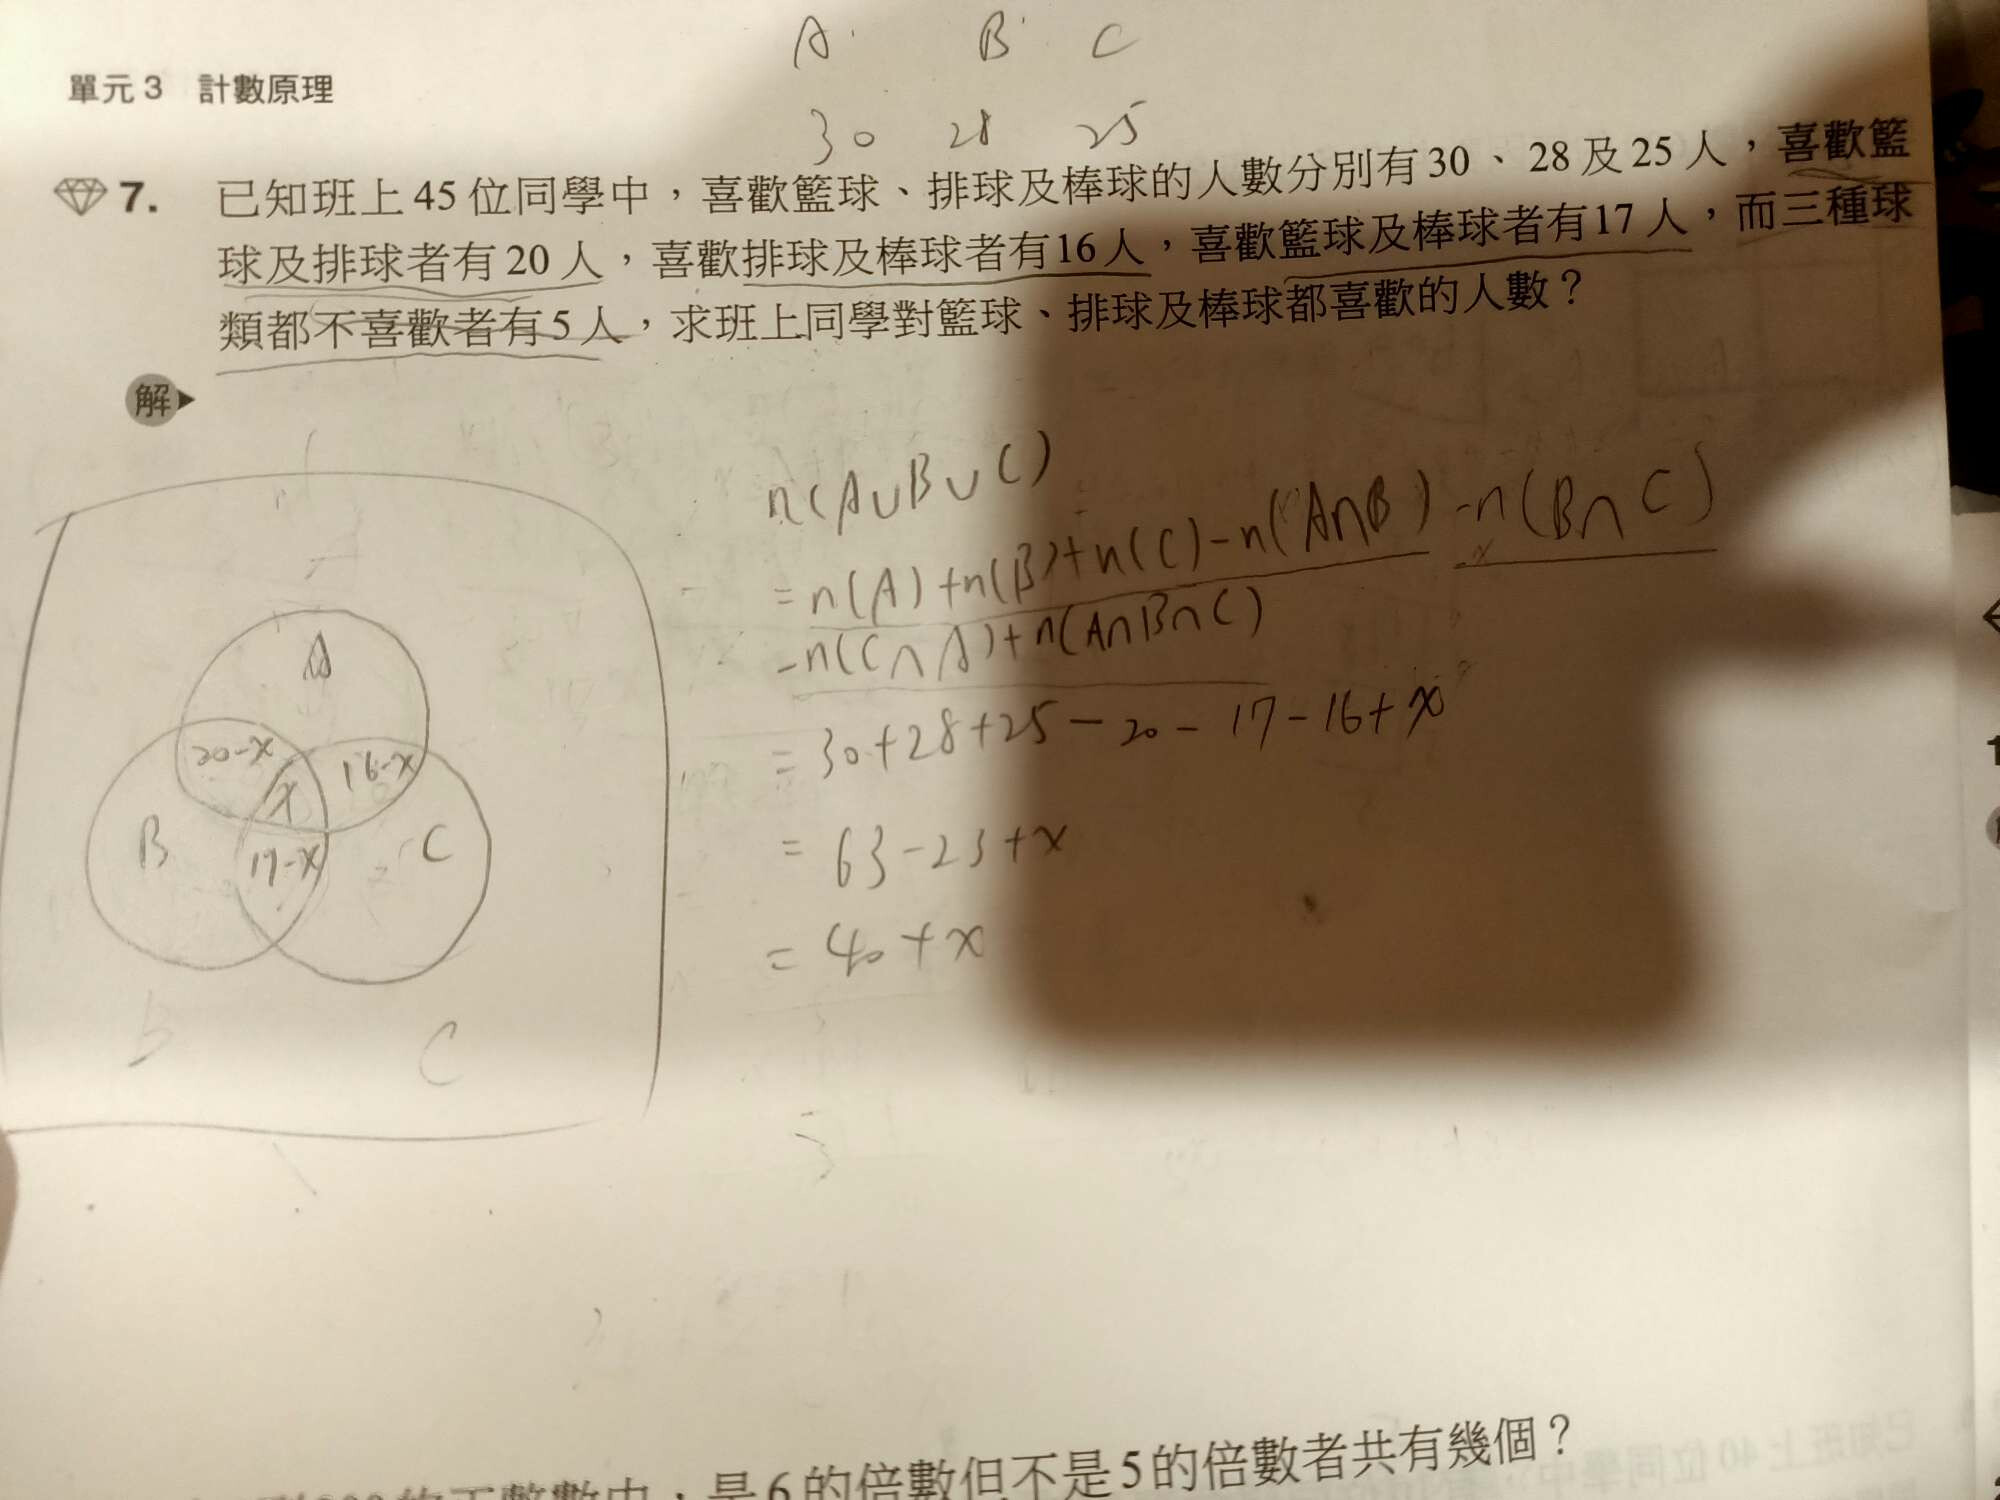 A B C
單元 3 計數原理
30 28 25
7. 已知班上 45 位同學中，喜歡籃球、排球及棒球的人數分別有 30、28 及 25 人，喜歡籃
球及排球者有 20 人，喜歡排球及棒球者有 16 人，喜歡籃球及棒球者有 17 人，而三種球
類都不喜歡者有 5 人，求班上同學對籃球、排球及棒球都喜歡的人數？
解
n(A∪B∪C)
=n(A)+n(B)+n(C)-n(A∩B)-n(B∩C)
-n(C∩A)+n(A∩B∩C)
=30+28+25-20-17-16+x
=63-23+x
=40+x
A
20-x 16-x
x
B C
17-x
C
是 6 的倍數但不是 5 的倍數者共有幾個？